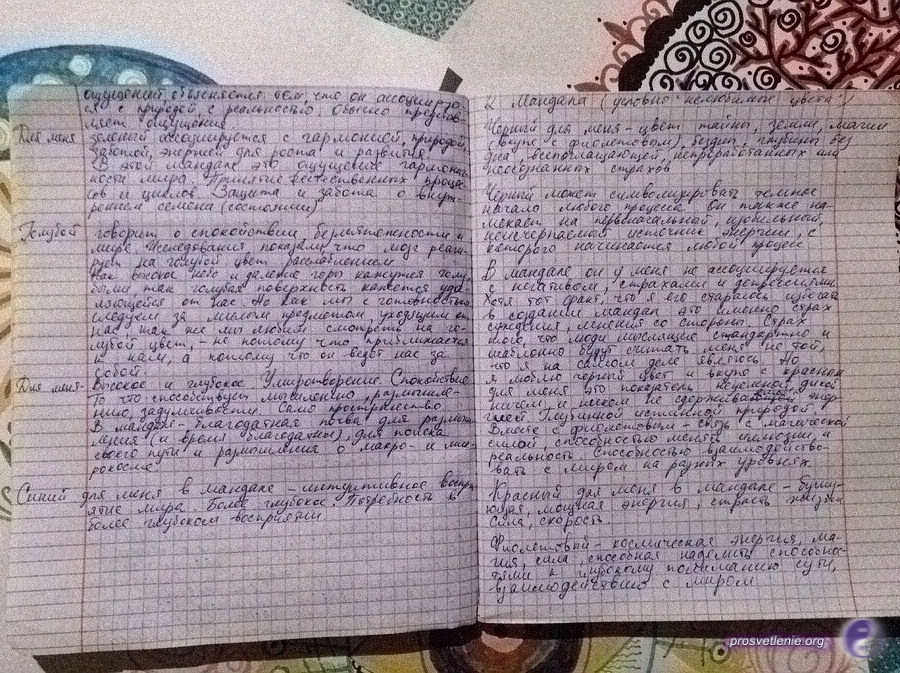 ощущений объясняется тем, что он ассоцииру-
ся с природой, с реальностью, обычно представ-
ляет ощущения
Для меня зеленый ассоциируется с гармонией, природой,
заботой, энергией для роста и развития.
В этой мандале это ощущение гармонич-
ности мира. Принятие естественных процес-
сов и циклов. Защита и забота о внут-
реннем семени (состоянии)
Голубой говорит о спокойствии, безмятежности и
мире. Исследования показали, что мозг реаги-
рует на голубой цвет расслаблением.
Как высокое небо и далекие горы кажутся голу-
быми так голубая поверхность кажется уда-
ляющейся от нас. Но как мы с готовностью
следуем за милым предметом, уходящим от
нас так же мы любим смотреть на го-
лубой цвет, - не потому что приближается
к нам, а потому что он ведёт нас за
собой.
Для меня - Высокое и глубокое. Умиротворение. Спокойствие.
То что способствует мышлению, размышле-
нию, задумчивости. Само пространство.
В мандале - благодатная почва для размыш-
ления (и время благодатное), для поиска
своего пути и размышления о макро- и мик-
рокосме.
Синий для меня в мандале - интуитивное воспри-
ятие мира. Более глубокое. Потребность в
более глубоком восприятии.
2 Мандала (условно "нелюбимые цвета")
Черный для меня - цвет тайны, земли, магии
(вкупе с фиолетовым), бездны, глубины без
дна, всепоглощающей, непроработанных или
неосознанных страхов
Черный может символизировать темное
начало любого процесса. Он также на-
мекает на первоначальный, изобильный,
неисчерпаемый источник энергии, с
которого начинается любой процесс
В мандале он у меня не ассоциируется
с негативом, страхами и депрессиями.
Хотя тот факт, что я его стараюсь избегать
в создании мандал это именно страх
суждения, мнения со стороны. Страх
того, что люди мыслящие стандартно и
шаблонно будут считать меня не той,
что я на самом деле являюсь. Но
я люблю черный цвет и вкупе с красным
для меня это показатель неуемной, дикой
ничем и никем не сдерживаемой энер-
гией. Глубинной истинной природой.
Вместе с фиолетовым - связь с магической
силой, способностью менять иллюзии и
реальность способностью взаимодейство-
вать с миром на разных уровнях.
Красный для меня в мандале - бушу-
ющая, мощная энергия, страсть, жизнь
сила, скорость.
Фиолетовый - космическая энергия, ма-
гия, сила, способная наделить способнос-
тями к глубокому пониманию сути,
взаимодействию с миром
prosvetlenie.org